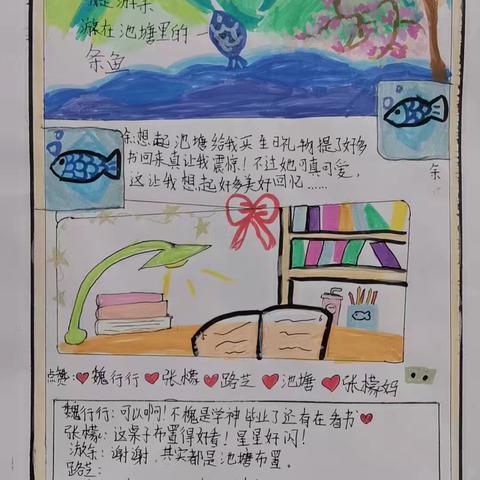 游在池塘里的一
条鱼
余想起池塘给我买生日礼物提了好多
书回来真让我震惊！不过她可真可爱，
这让我想起好多美好回忆……
余
点赞：❤魏行行❤张檬❤路芝❤池塘❤张檬妈
魏行行：可以啊！不槐是学神毕业了还有在看书❤
张檬：这桌子布置得好看！星星好闪！
游余：谢谢，其实都是池塘布置。
路芝：